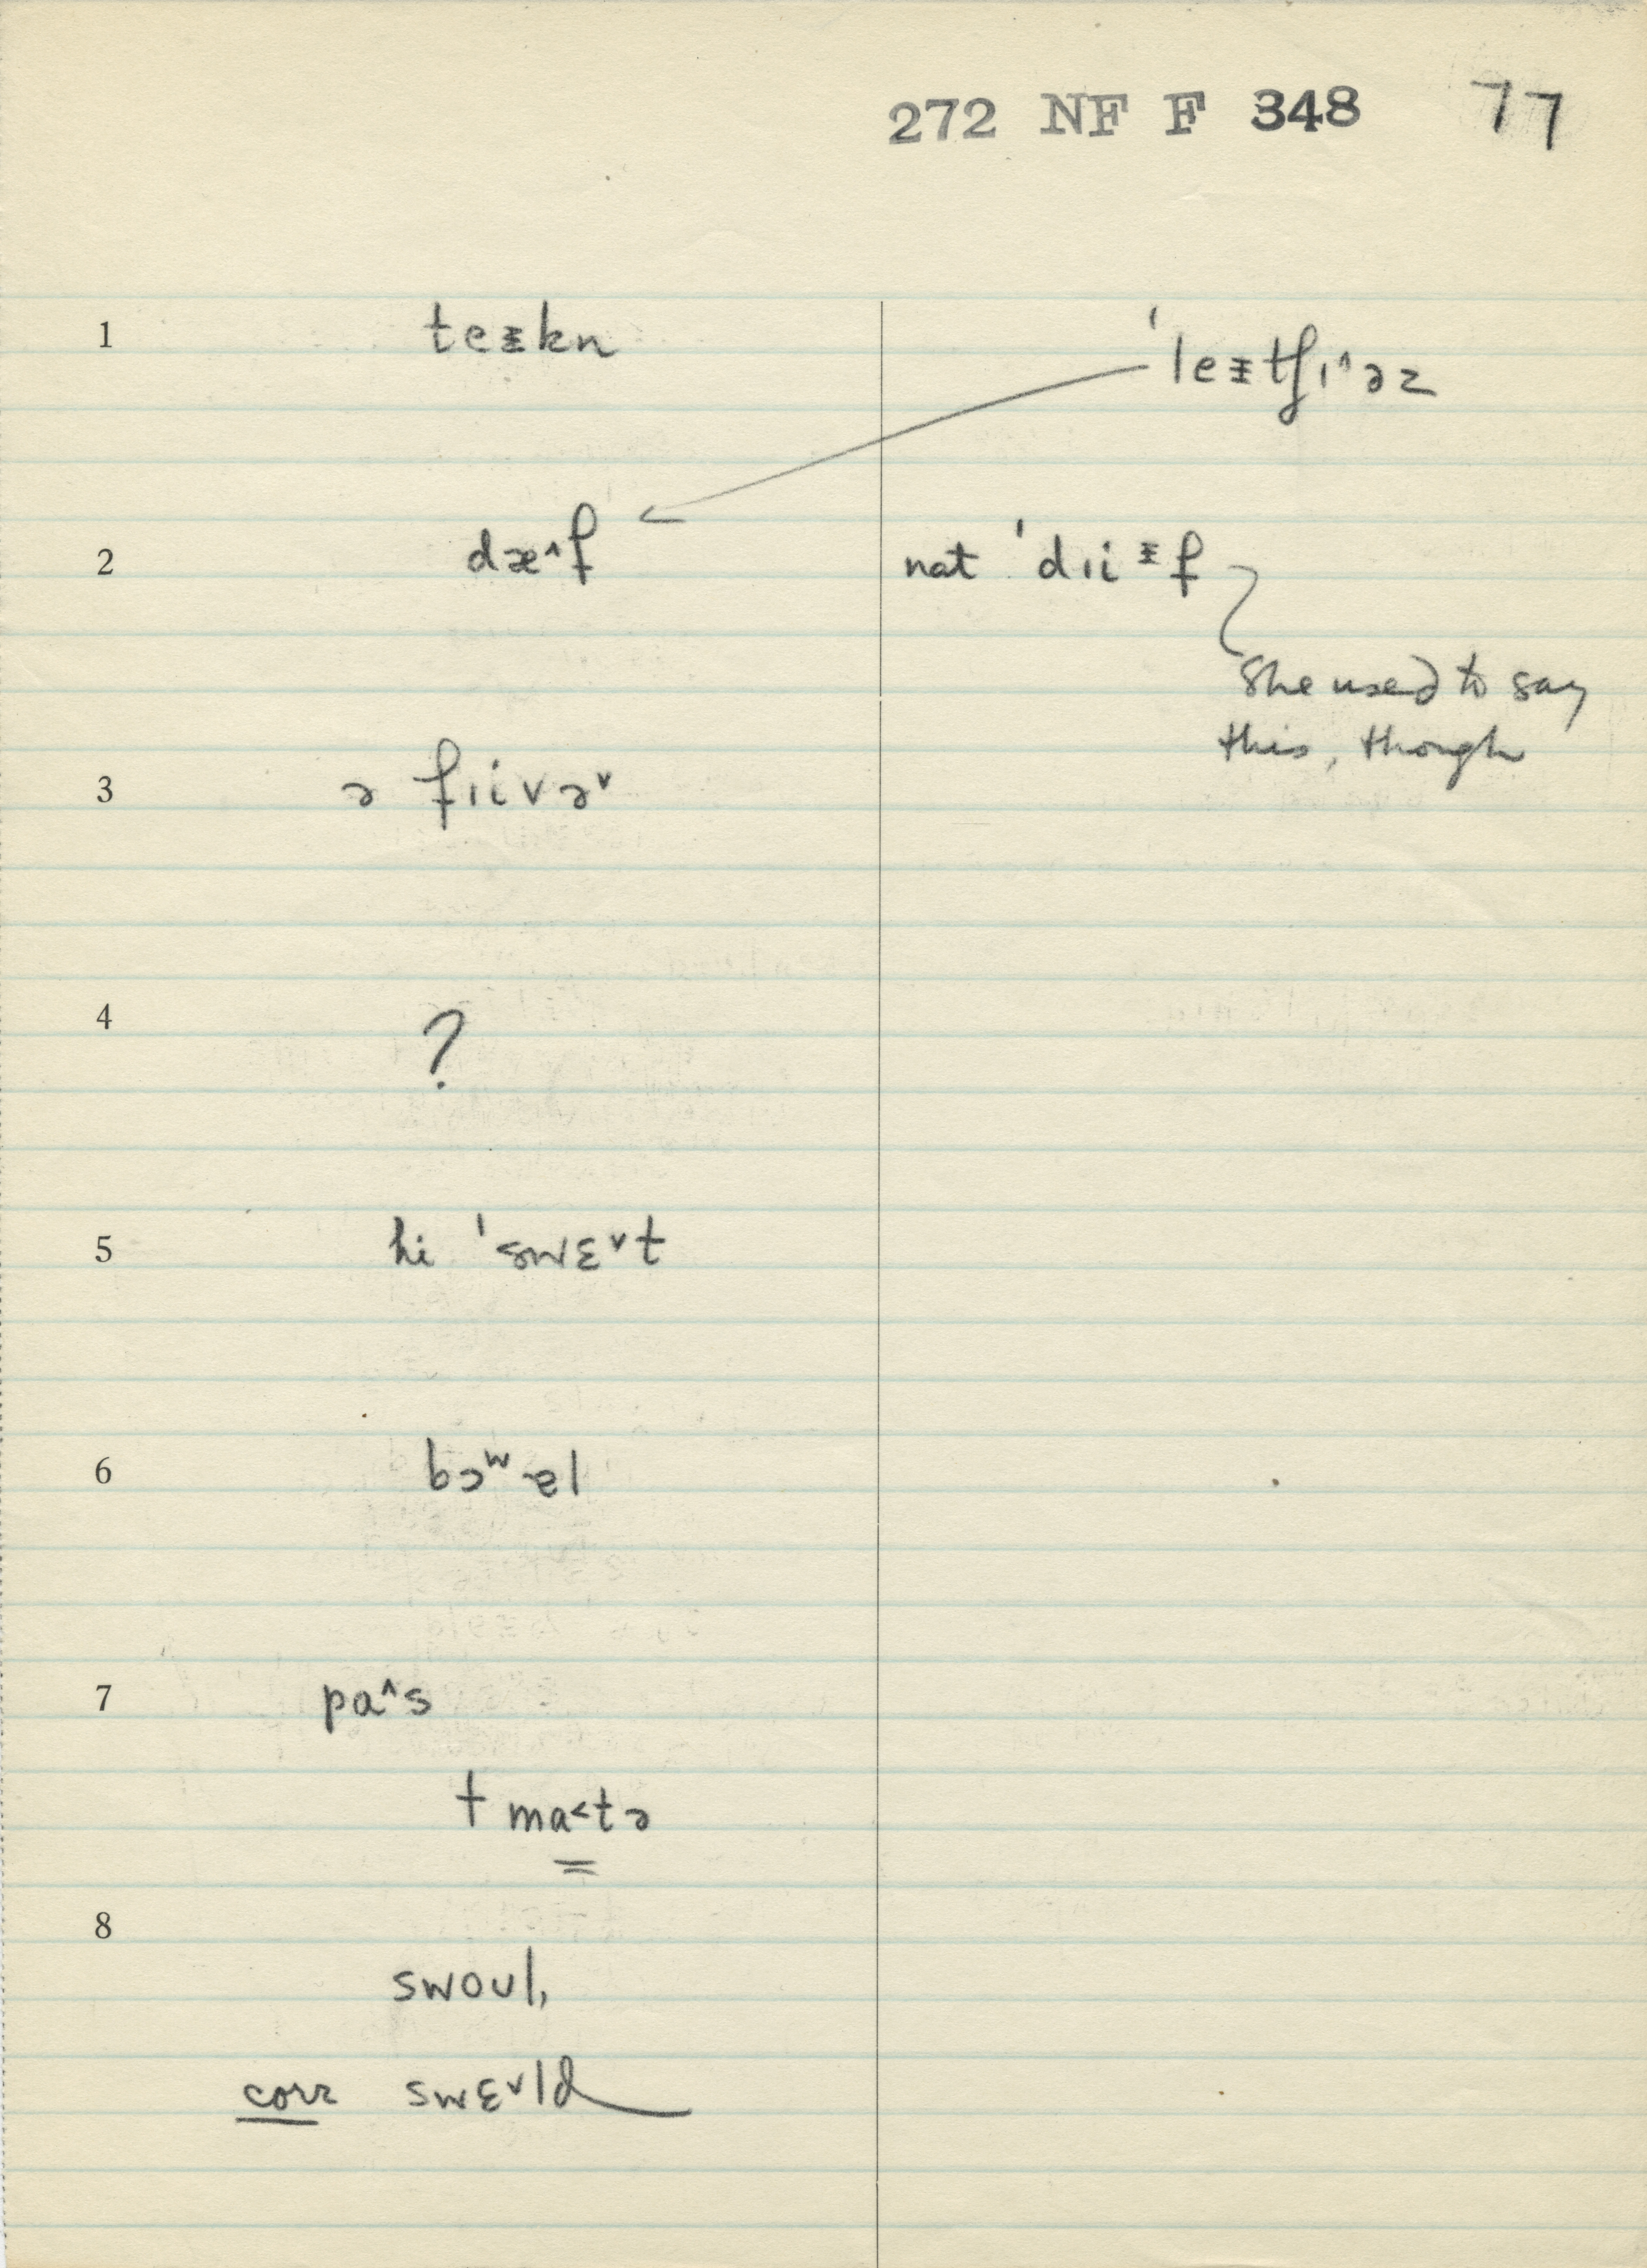 272 NF F 348 77
1 teᵻkn
ˈleᵻtʃɪ˄əz
2 dæ˄f
nat ˈdɪiᵻf
She used to say
this, though
3 ə fɪivə˅
4 ?
5 hi ˈswɛ˅t
6 bɔʷəl
7 pa˄s
tma˂tə
8
swoʊl,
corr swɛ˅ld